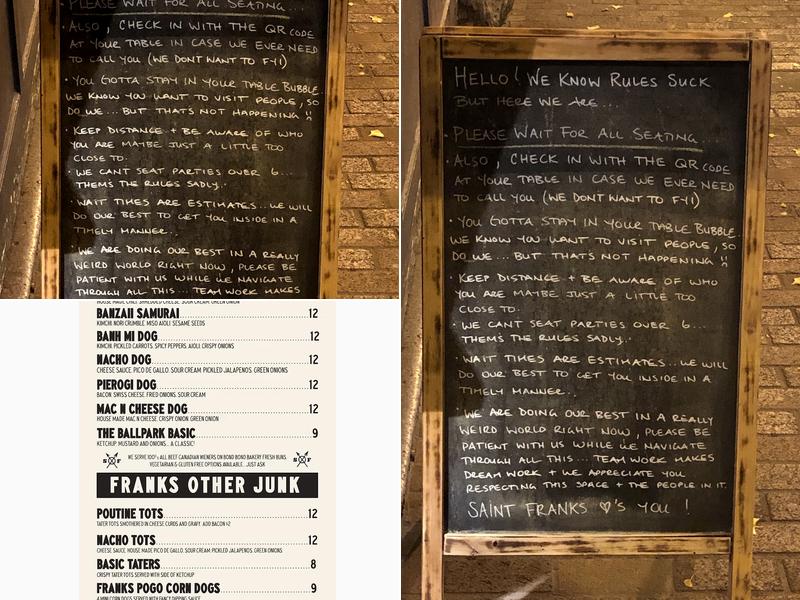 PLEASE WAIT FOR ALL SEATING...
· ALSO, CHECK IN WITH THE QR CODE
AT YOUR TABLE IN CASE WE EVER NEED
TO CALL YOU (WE DONT WANT TO F-YI)
· YOU GOTTA STAY IN YOUR TABLE BUBBLE.
WE KNOW YOU WANT TO VISIT PEOPLE, SO
DO WE... BUT THAT'S NOT HAPPENING
· KEEP DISTANCE + BE AWARE OF WHO
YOU ARE MAYBE JUST A LITTLE TOO
CLOSE TO.
· WE CANT SEAT PARTIES OVER 6...
THEMS THE RULES SADLY..
· WAIT TIMES ARE ESTIMATES...WE WILL
DO OUR BEST TO GET YOU INSIDE IN A
TIMELY MANNER..
· WE ARE DOING OUR BEST IN A REALLY
WEIRD WORLD RIGHT NOW, PLEASE BE
PATIENT WITH US WHILE WE NAVIGATE
THROUGH ALL THIS... TEAM WORK MAKES
HOUSE MADE CHILI SHREDDED CHEESE, SOUR CREAM, GREEN ONION
BANZAII SAMURAI 12
KIMCHI NORI CRUMBLE MISO AIOLI SESAME SEEDS
BANH MI DOG 12
KIMCHI, PICKLED CARROTS, SPICY PEPPERS, AIOLI, CRISPY ONIONS
NACHO DOG 12
CHEESE SAUCE, PICO DE GALLO, SOUR CREAM, PICKLED JALAPENOS, GREEN ONIONS
PIEROGI DOG 12
BACON SWISS CHEESE, FRIED ONIONS, SOUR CREAM
MAC N CHEESE DOG 12
HOUSE MADE MAC N CHEESE, CRISPY ONION, GREEN ONION
THE BALLPARK BASIC 9
KETCHUP, MUSTARD AND ONIONS... A CLASSIC!
WE SERVE 100% ALL BEEF CANADIAN WIENERS ON BOND BOND BAKERY FRESH BUNS.
VEGETARIAN & GLUTEN FREE OPTIONS AVAILABLE... JUST ASK
FRANKS OTHER JUNK
POUTINE TOTS 12
TATER TOTS SMOTHERED IN CHEESE CURDS AND GRAVY. ADD BACON +2
NACHO TOTS 12
CHEESE SAUCE, HOUSE MADE PICO DE GALLO, SOUR CREAM, PICKLED JALAPENOS, GREEN ONIONS
BASIC TATERS 8
CRISPY TATER TOTS SERVED WITH SIDE OF KETCHUP
FRANKS POGO CORN DOGS 9
4 MINI CORN DOGS SERVED WITH FANCY DIPPING SAUCE
HELLO! WE KNOW RULES SUCK
BUT HERE WE ARE...
· PLEASE WAIT FOR ALL SEATING...
· ALSO, CHECK IN WITH THE QR CODE
AT YOUR TABLE IN CASE WE EVER NEED
TO CALL YOU (WE DONT WANT TO F-YI)
· YOU GOTTA STAY IN YOUR TABLE BUBBLE.
WE KNOW YOU WANT TO VISIT PEOPLE, SO
DO WE... BUT THAT'S NOT HAPPENING
· KEEP DISTANCE + BE AWARE OF WHO
YOU ARE MAYBE JUST A LITTLE TOO
CLOSE TO.
· WE CANT SEAT PARTIES OVER 6...
THEMS THE RULES SADLY..
· WAIT TIMES ARE ESTIMATES...WE WILL
DO OUR BEST TO GET YOU INSIDE IN A
TIMELY MANNER..
WE ARE DOING OUR BEST IN A REALLY
WEIRD WORLD RIGHT NOW, PLEASE BE
PATIENT WITH US WHILE WE NAVIGATE
THROUGH ALL THIS... TEAM WORK MAKES
DREAM WORK + WE APPRECIATE YOU
RESPECTING THIS SPACE + THE PEOPLE IN IT.
SAINT FRANKS ♡'S YOU!